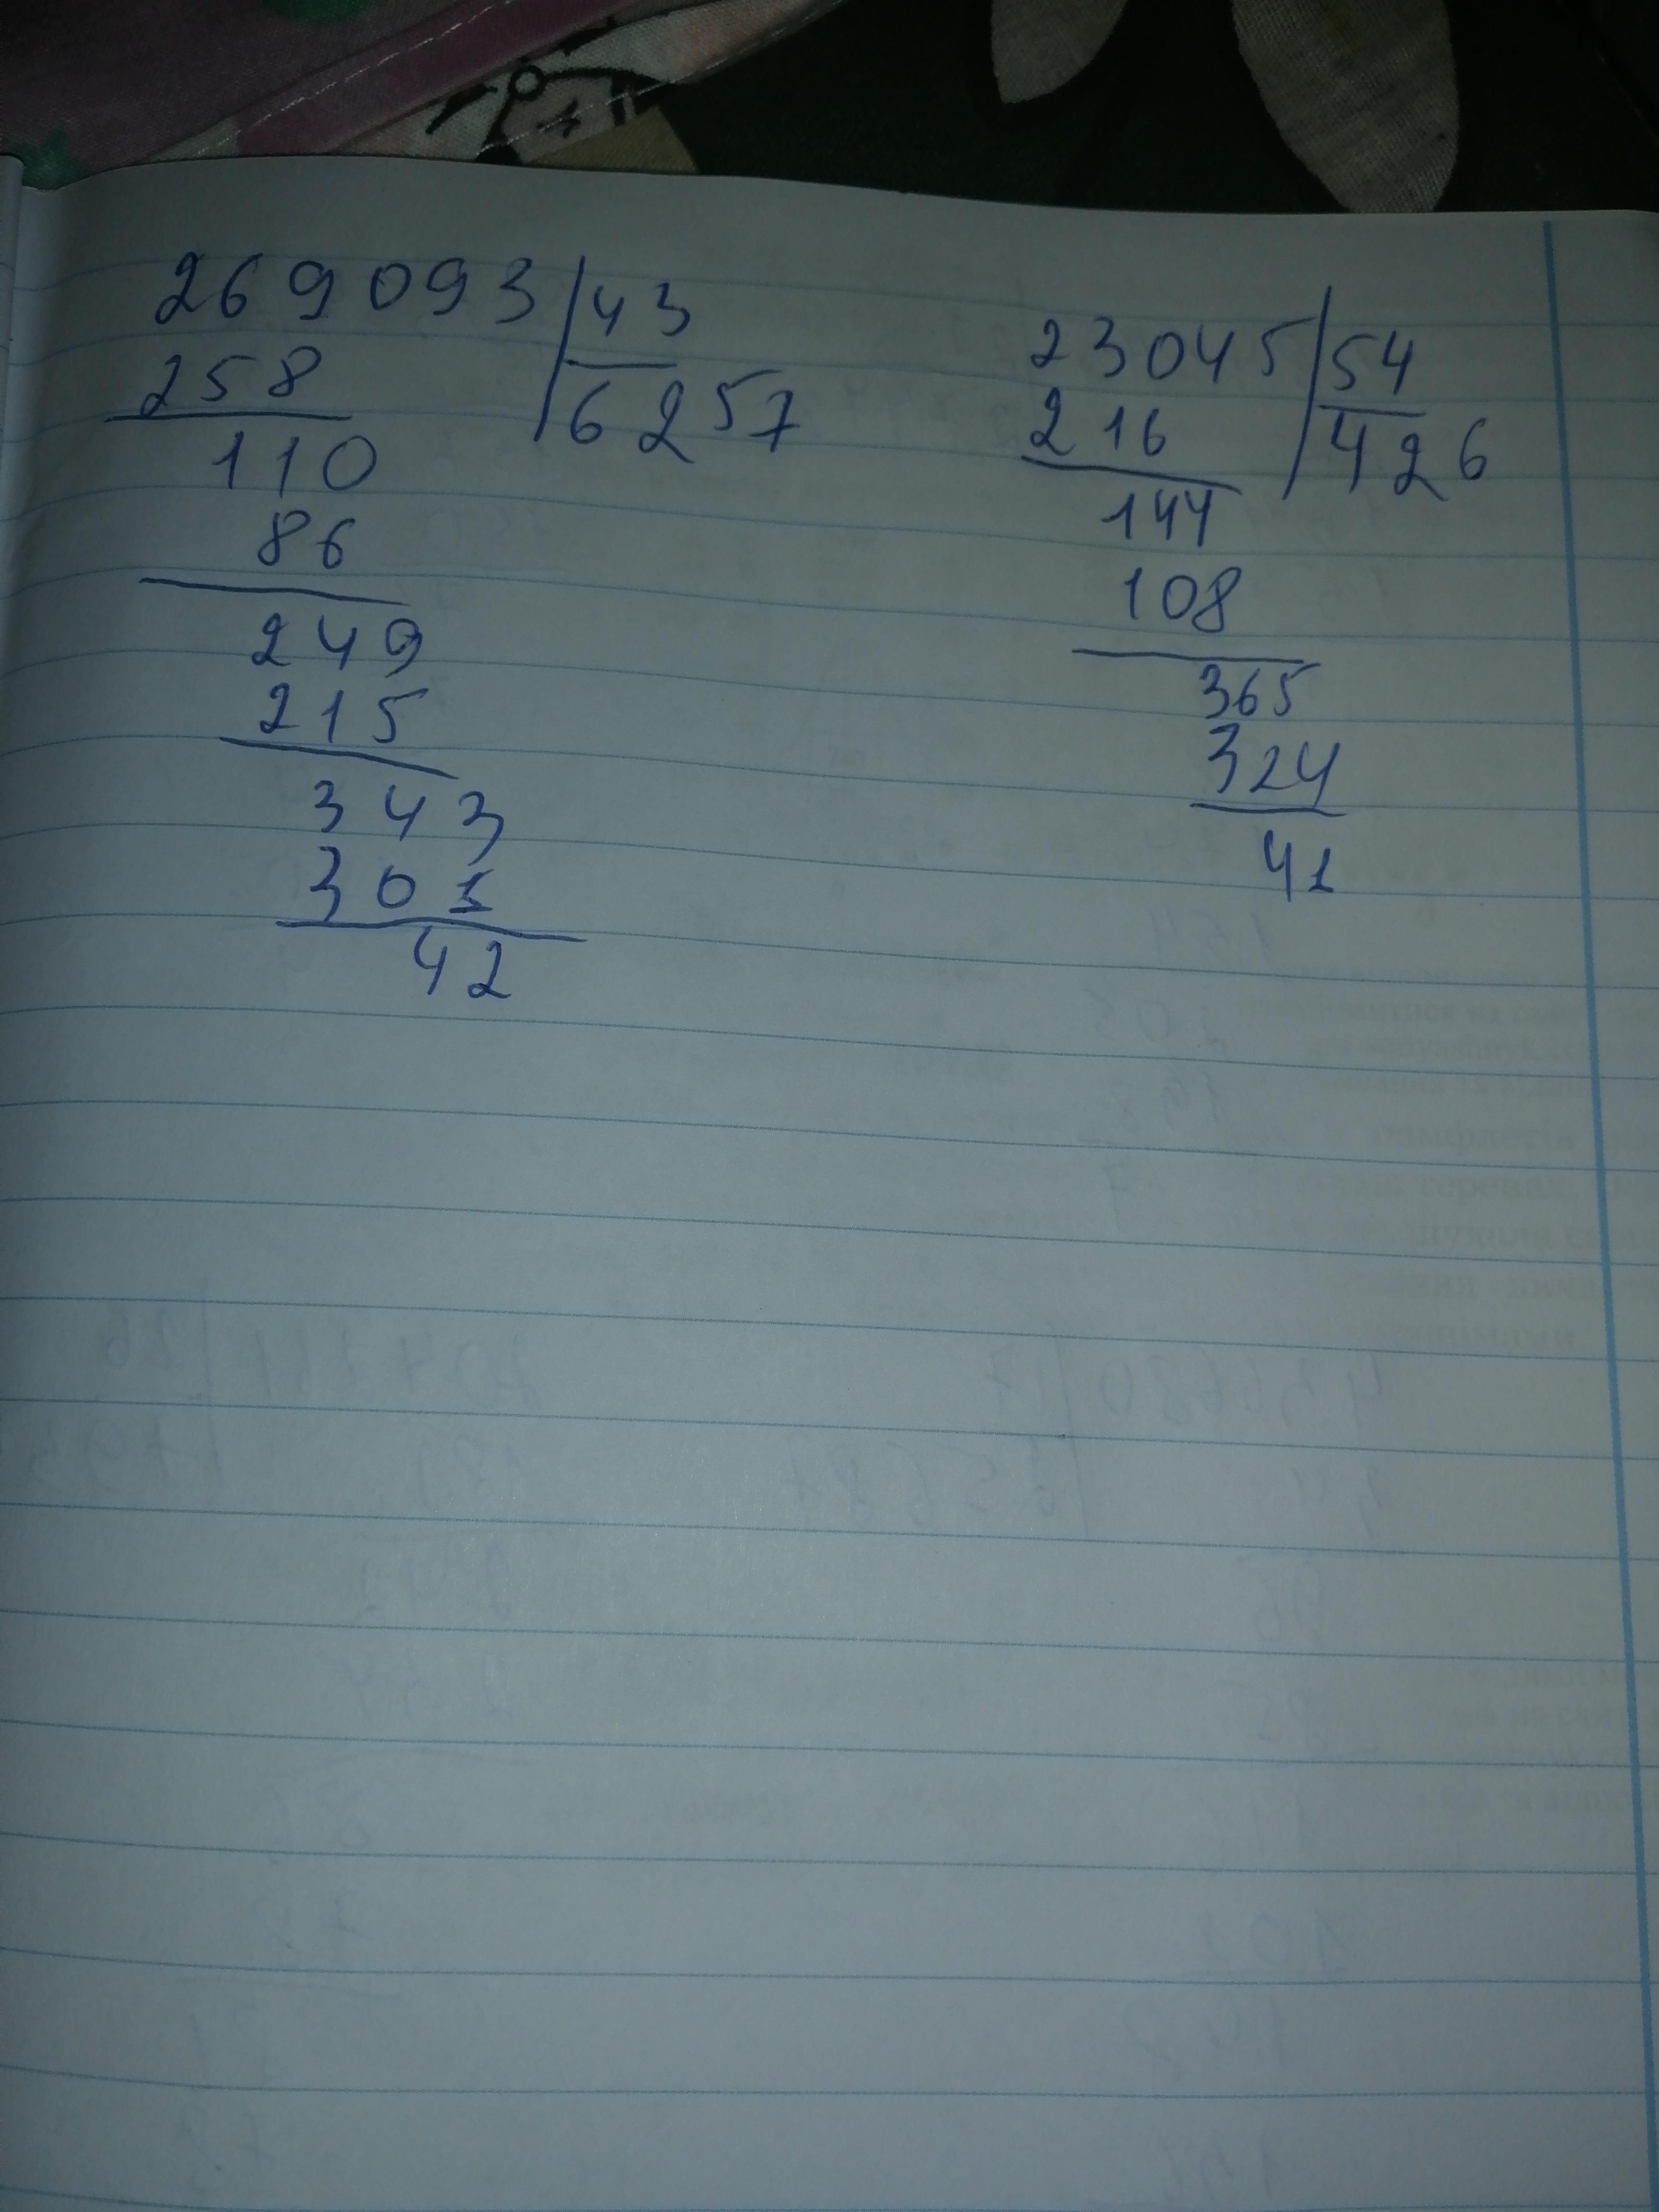 269093 43
258 6257
110
86
249
215
343
301
42
23045 54
216 426
144
108
365
324
41